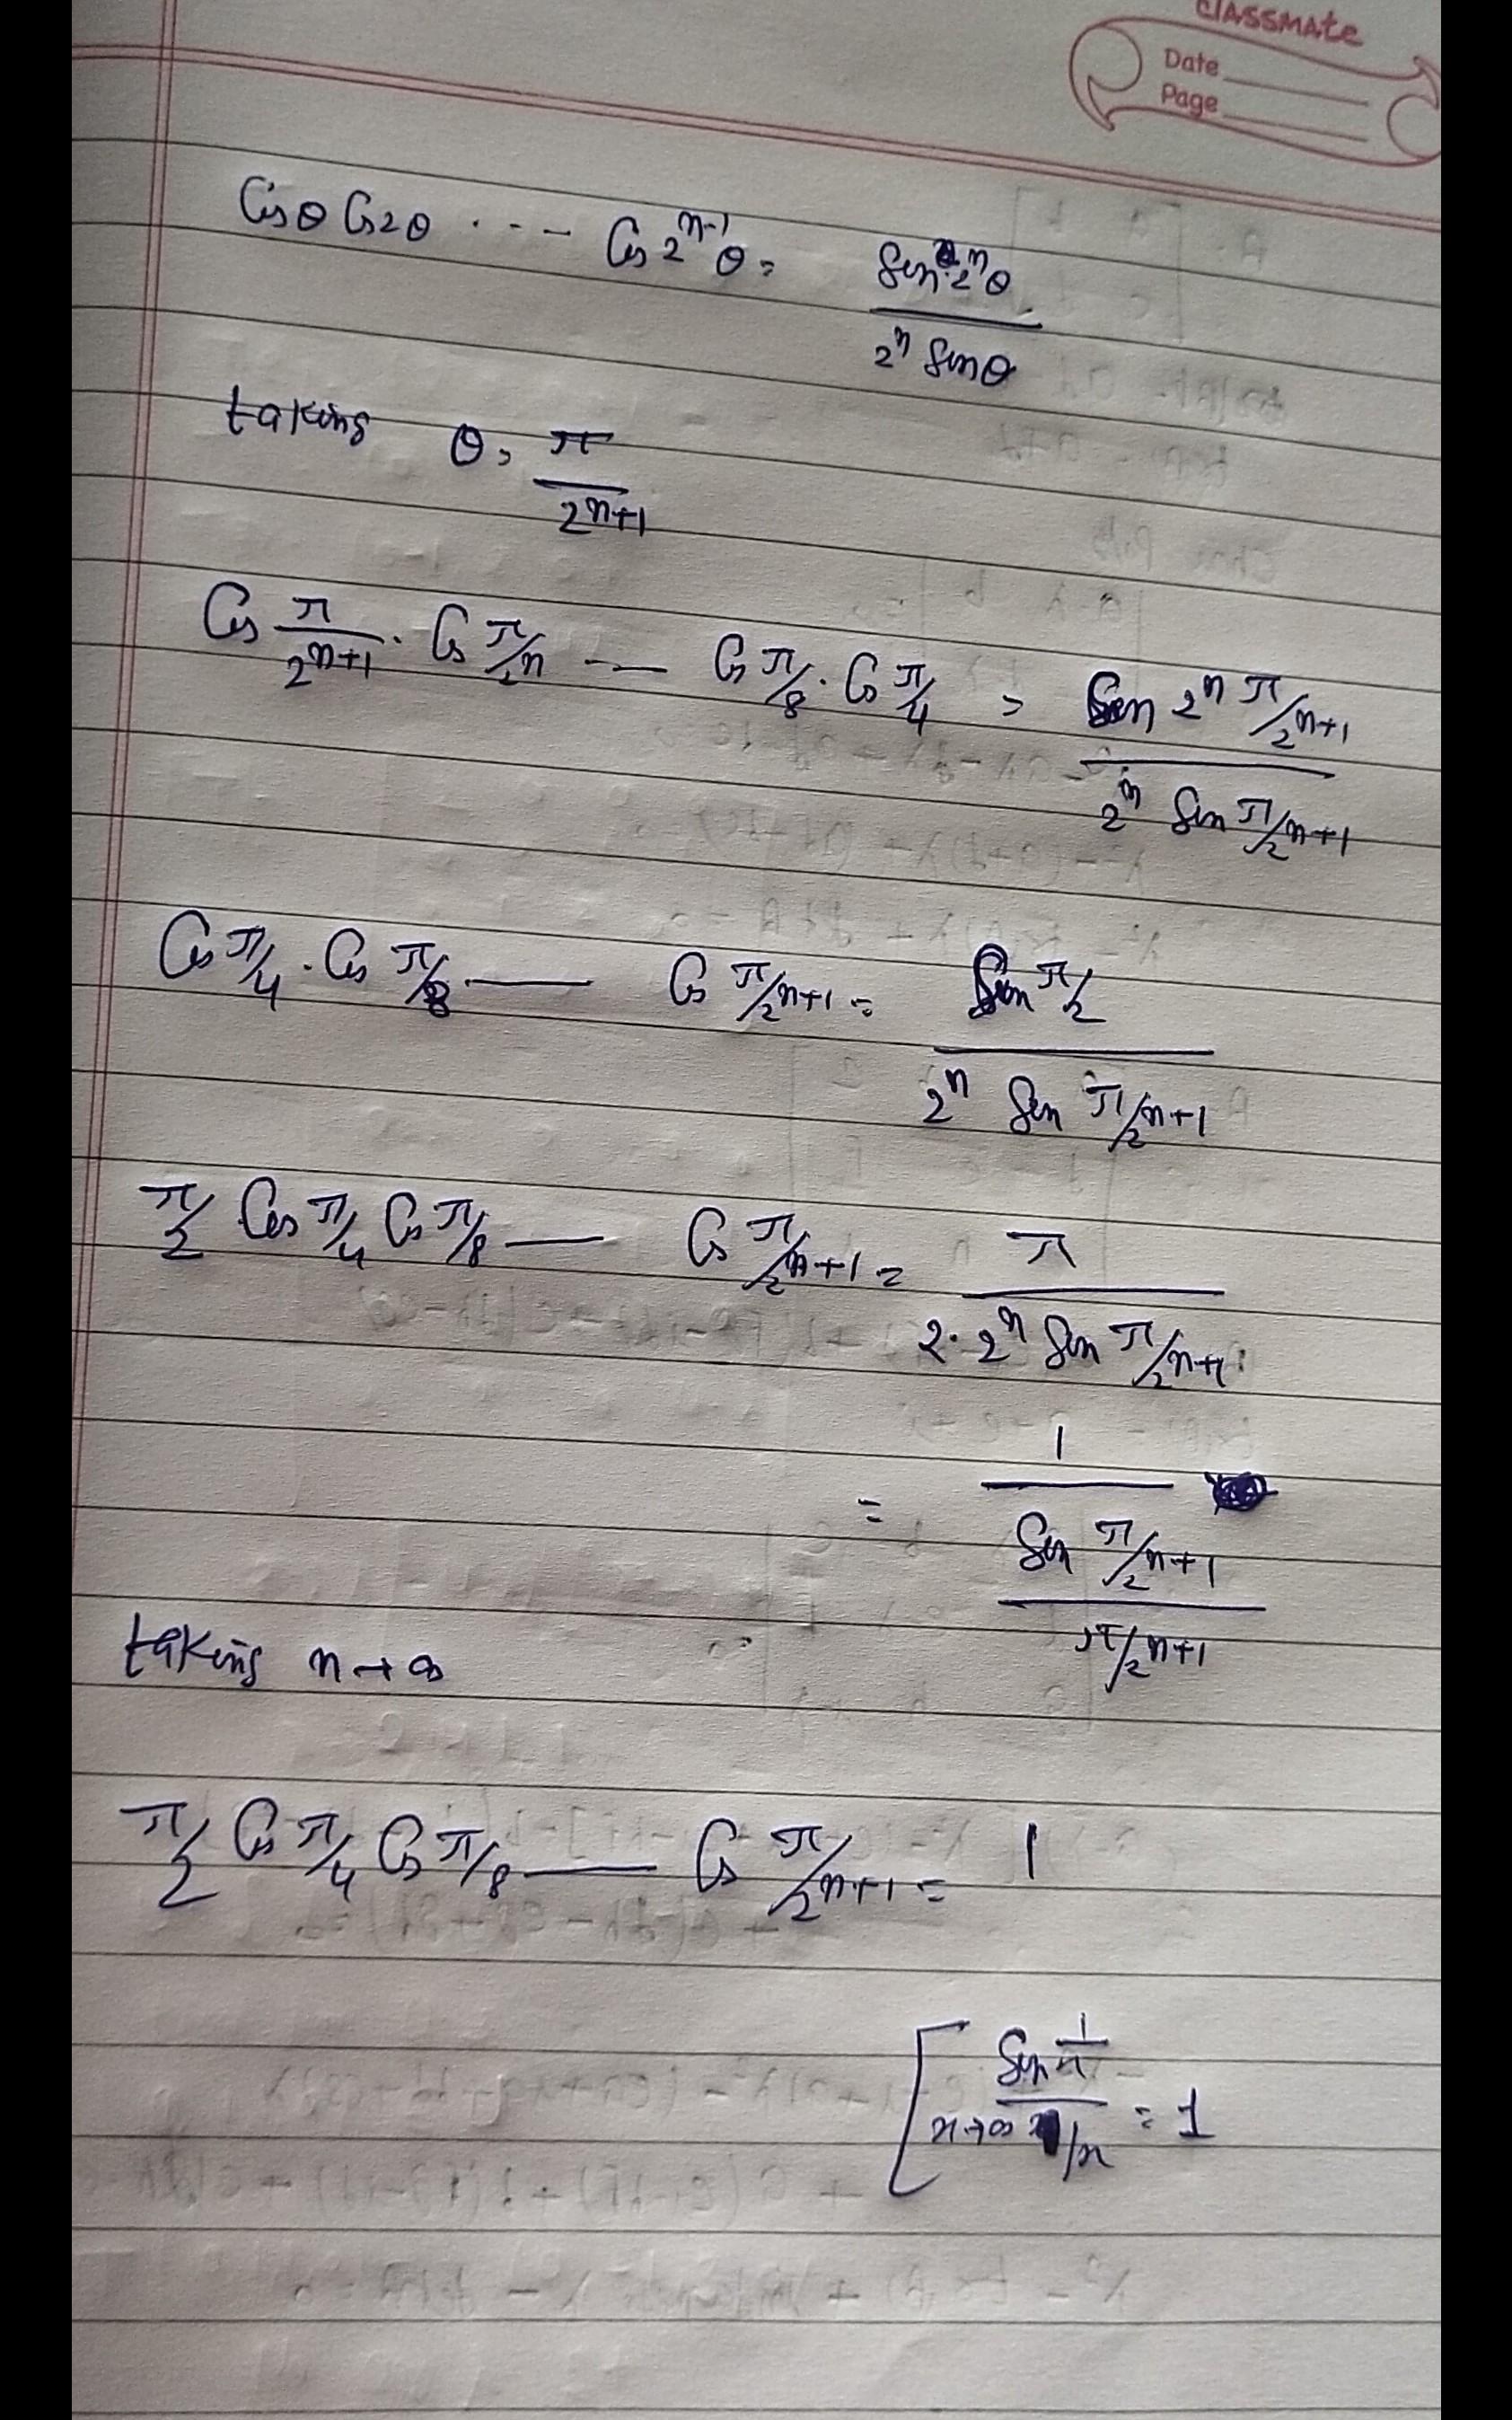 classmate
Date
Page
Cosθ Cos2θ ---- Cos 2^{n-1}θ = \frac{Sin 2^nθ}{2^n Sinθ}
taking θ = \frac{π}{2^{n+1}}
Cos \frac{π}{2^{n+1}} · Cos π/2^n --- Cos π/8 · Cos π/4 = \frac{Sin 2^n π/2^{n+1}}{2^n Sin π/2^{n+1}}
Cos π/4 · Cos π/8 — Cos π/2^{n+1} = \frac{Sin π/2}{2^n Sin π/2^{n+1}}
π/2 Cos π/4 Cos π/8 — Cos π/2^{n+1} = \frac{π}{2 · 2^n Sin π/2^{n+1}}
= \frac{1}{\frac{Sin π/2^{n+1}}{π/2^{n+1}}}
taking n → ∞
π/2 Cos π/4 Cos π/8 — Cos π/2^{n+1} = 1
[ n→∞ \frac{Sin \frac{1}{n}}{1/n} = 1